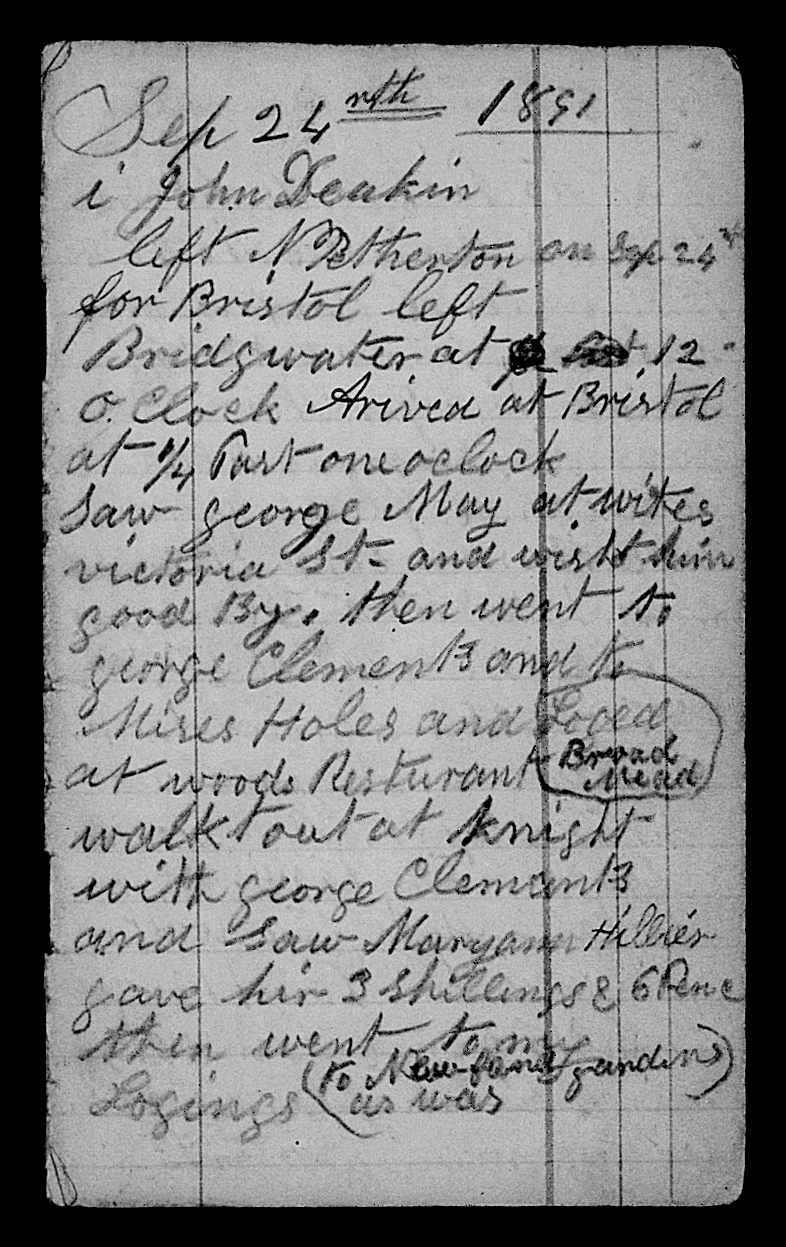 Sep 24 nth 1891
i John Deakin
left N Petherton on Sep 24
for Bristol left
Bridgwater at 12
O. Clock Arived at Bristol
at 1/4 Past one oclock
Saw george May at wites
victoria St- and wisht him
good By. then went to
george Clements and to
Mises Holes and Loged
at woods Resturant Broad Mead
walkt out at knight
with george Clements
and Saw Maryann Hillier
gave hir 3 Shillings & 6 Penc
then went to my
Logings (to New as was)